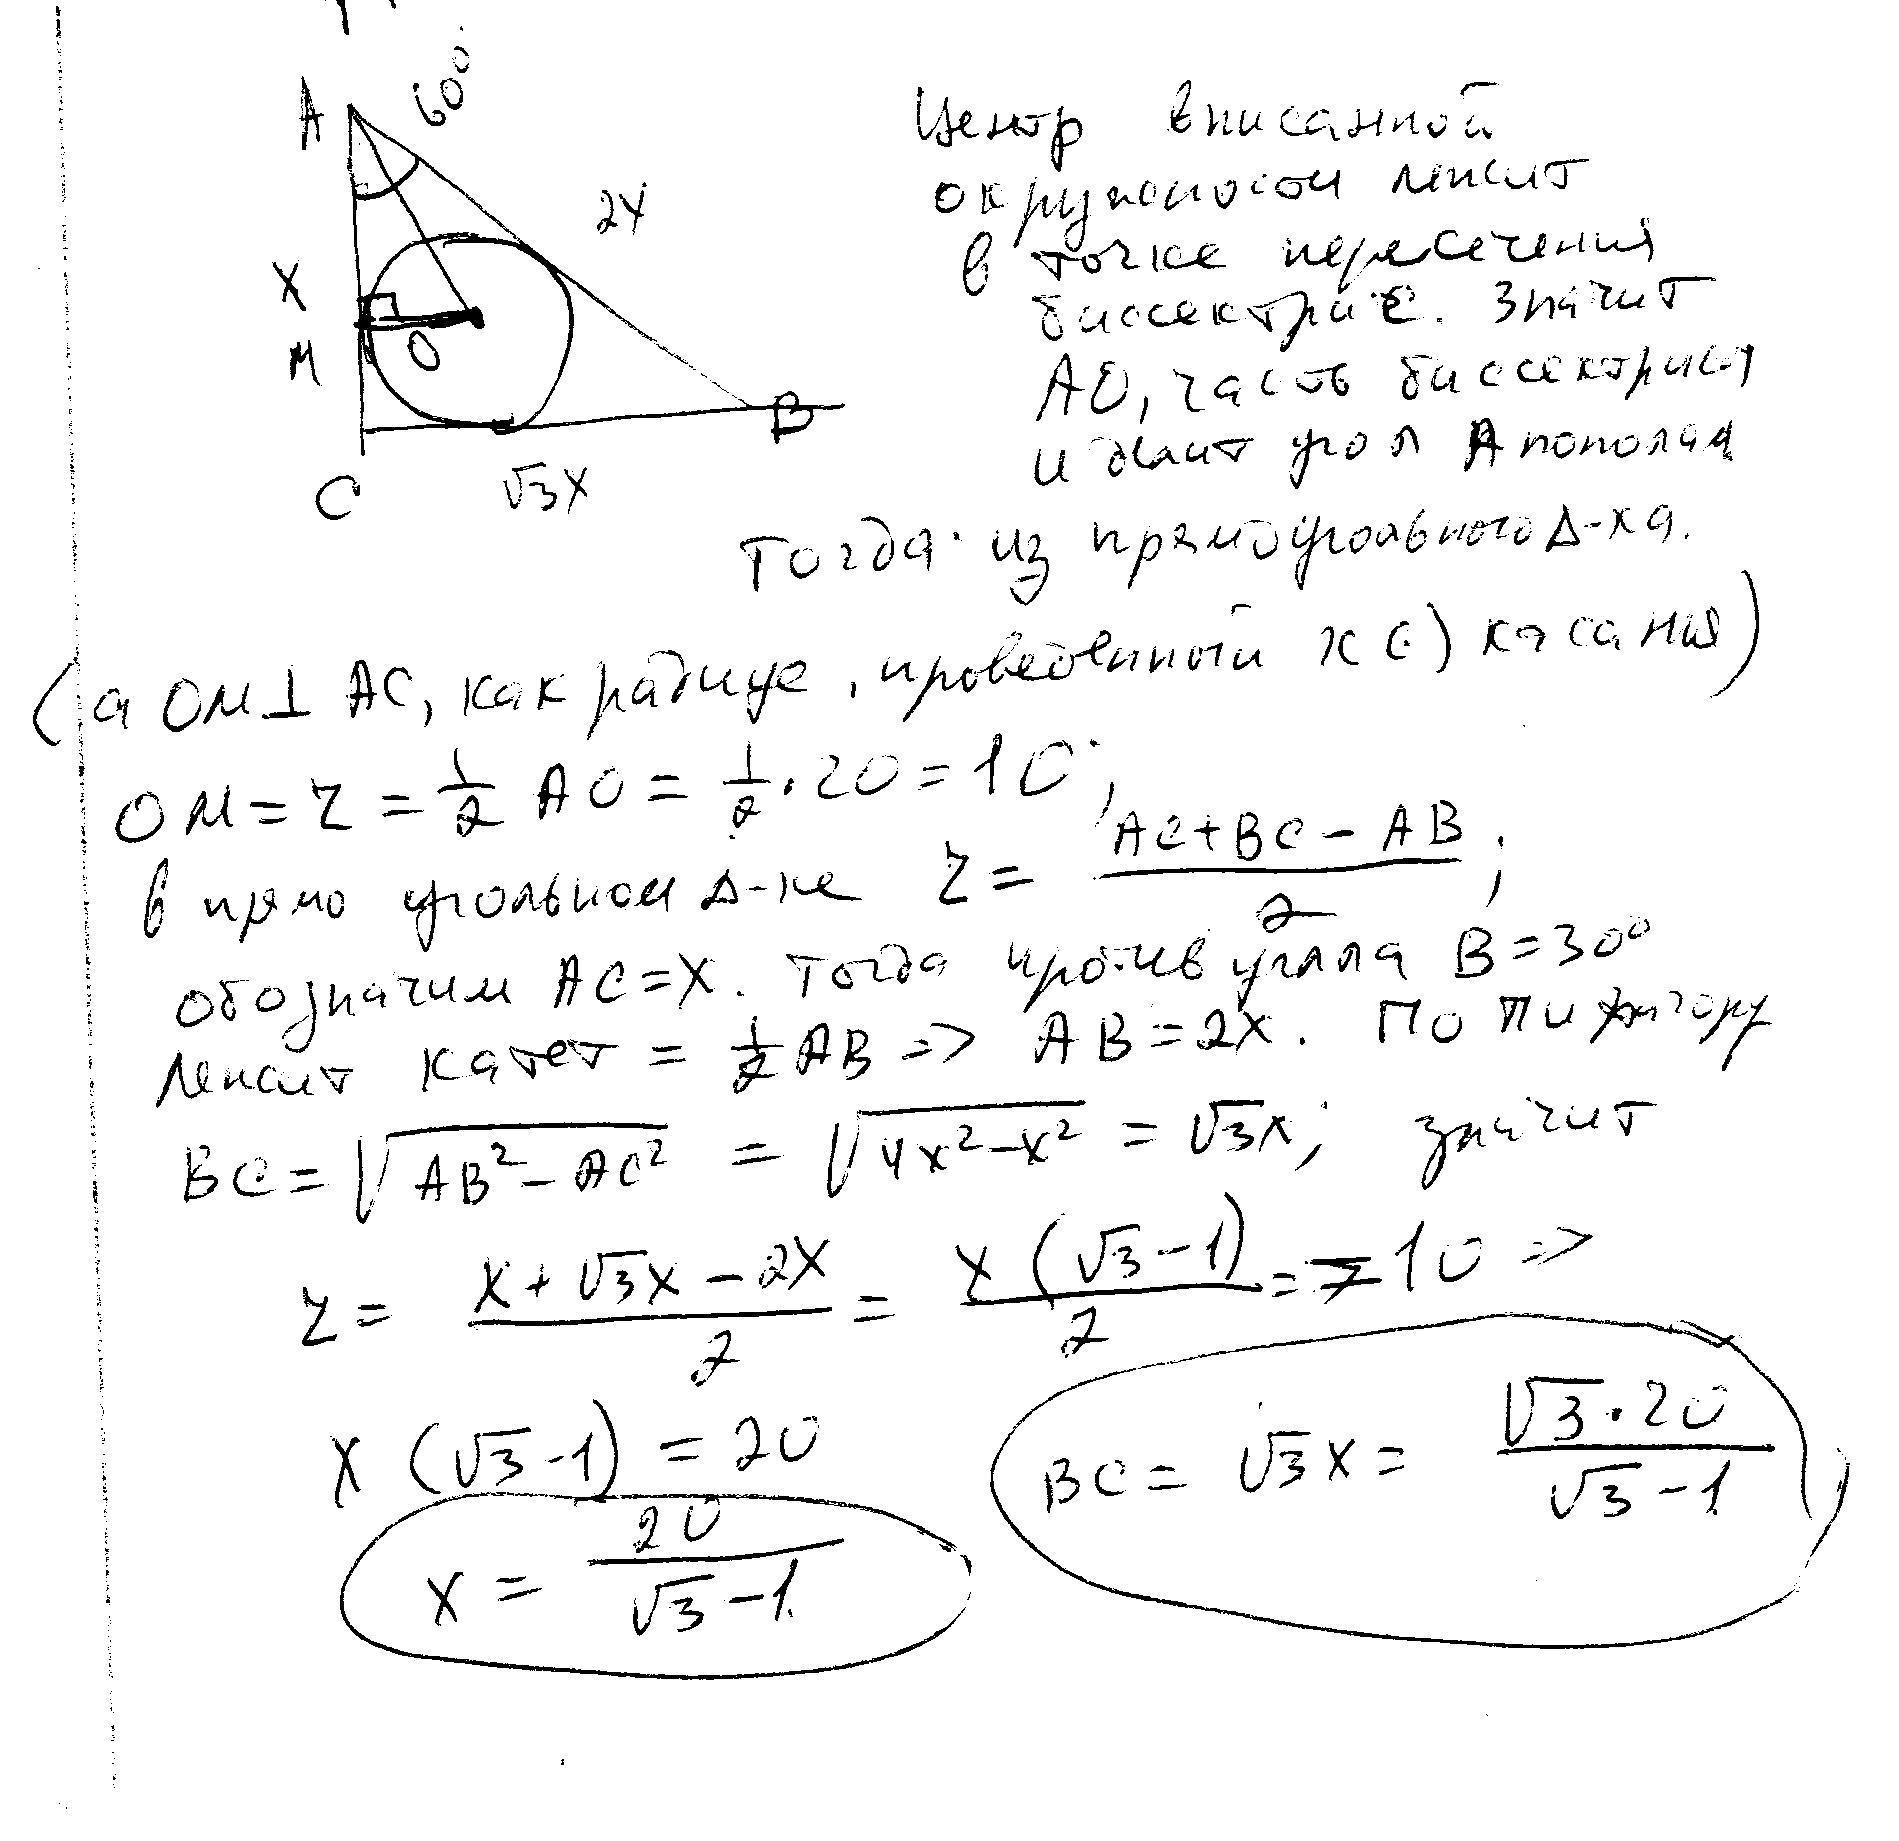 A
60°
2x
x
M
O
B
C
√3x
Центр вписанной
окружности лежит
в точке пересечения
биссектрис. Значит
AO, часть биссектрисы
и делит угол A пополам
Тогда из прямоугольного Δ-ка.
(а OM⊥AC, как радиус, проведенный к (·) касания)
OM = r = 1/2 AO = 1/2 · 20 = 10;
в прямоугольном Δ-ке r = (AC+BC−AB)/2;
обозначим AC=x. Тогда против угла B=30°
лежит катет = 1/2 AB => AB=2x. По Пифагору
BC = √(AB²−AC²) = √(4x²−x²) = √3x; значит
r = (x+√3x−2x)/2 = x(√3−1)/2 = 10 =>
x(√3−1) = 20
x = 20/(√3−1)
BC = √3x = √3·20/(√3−1)